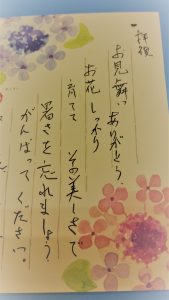 拝復
お見舞いありがとう、
お花しっかり
育てて その美しさで
暑さを忘れましょう
がんばってください。